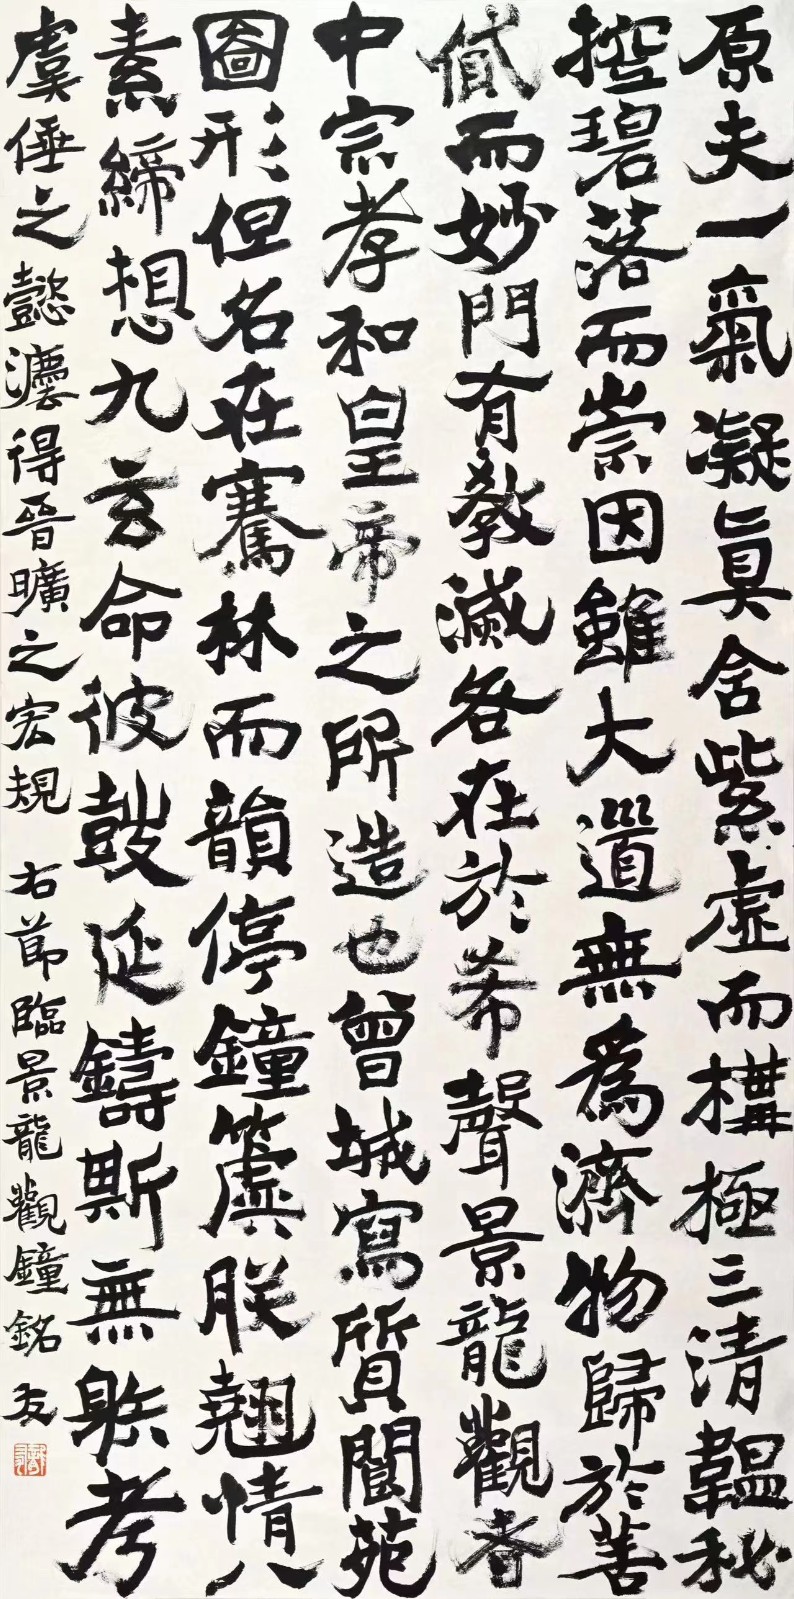 原夫一氣凝真含紫虛而構極三清韞秘
控碧落而崇因雖大道無為濟物歸於善
貸而妙門有教滅咎在於希聲景龍觀者
中宗孝和皇帝之所造也曾城寫質閬苑
圖形但名在騫林而韻停鐘虡朕翹情八
素締想九玄命彼鼓延鑄斯無射考
虞倕之懿灋得晉曠之宏規 右節臨景龍觀鐘銘 友